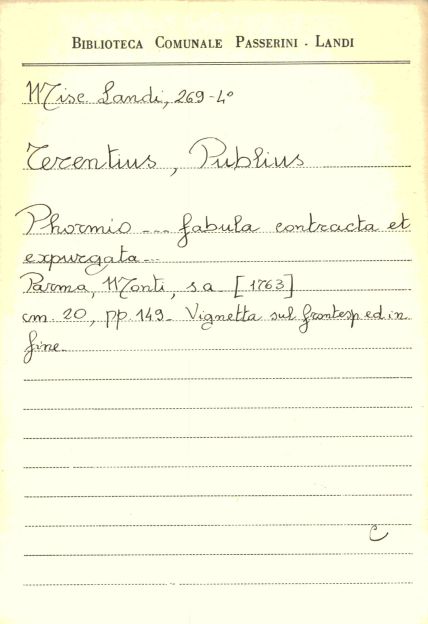 BIBLIOTECA COMUNALE PASSERINI - LANDI
Misc. Landi, 269-4°
Terentius, Publius
Phormio --- fabula contracta et
expurgata...
Parma, Monti, s.a. [1763]
cm. 20, pp. 149. Vignetta sul frontesp. ed in
fine.
C